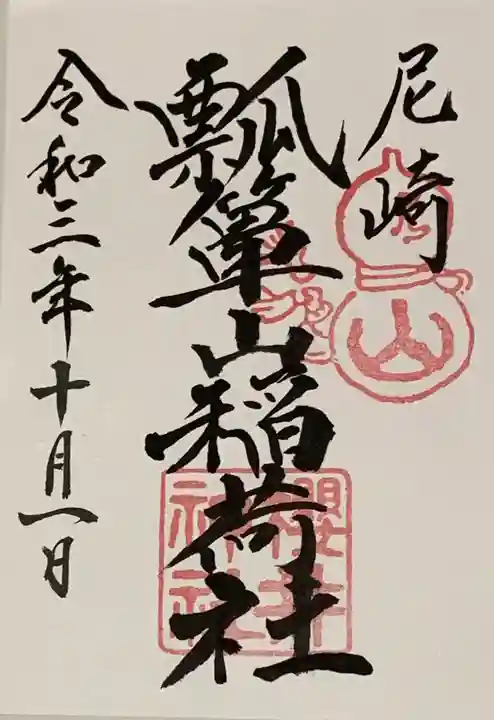 尼崎
瓢箪山稲荷社
令和三年十月一日
山
櫻井神社